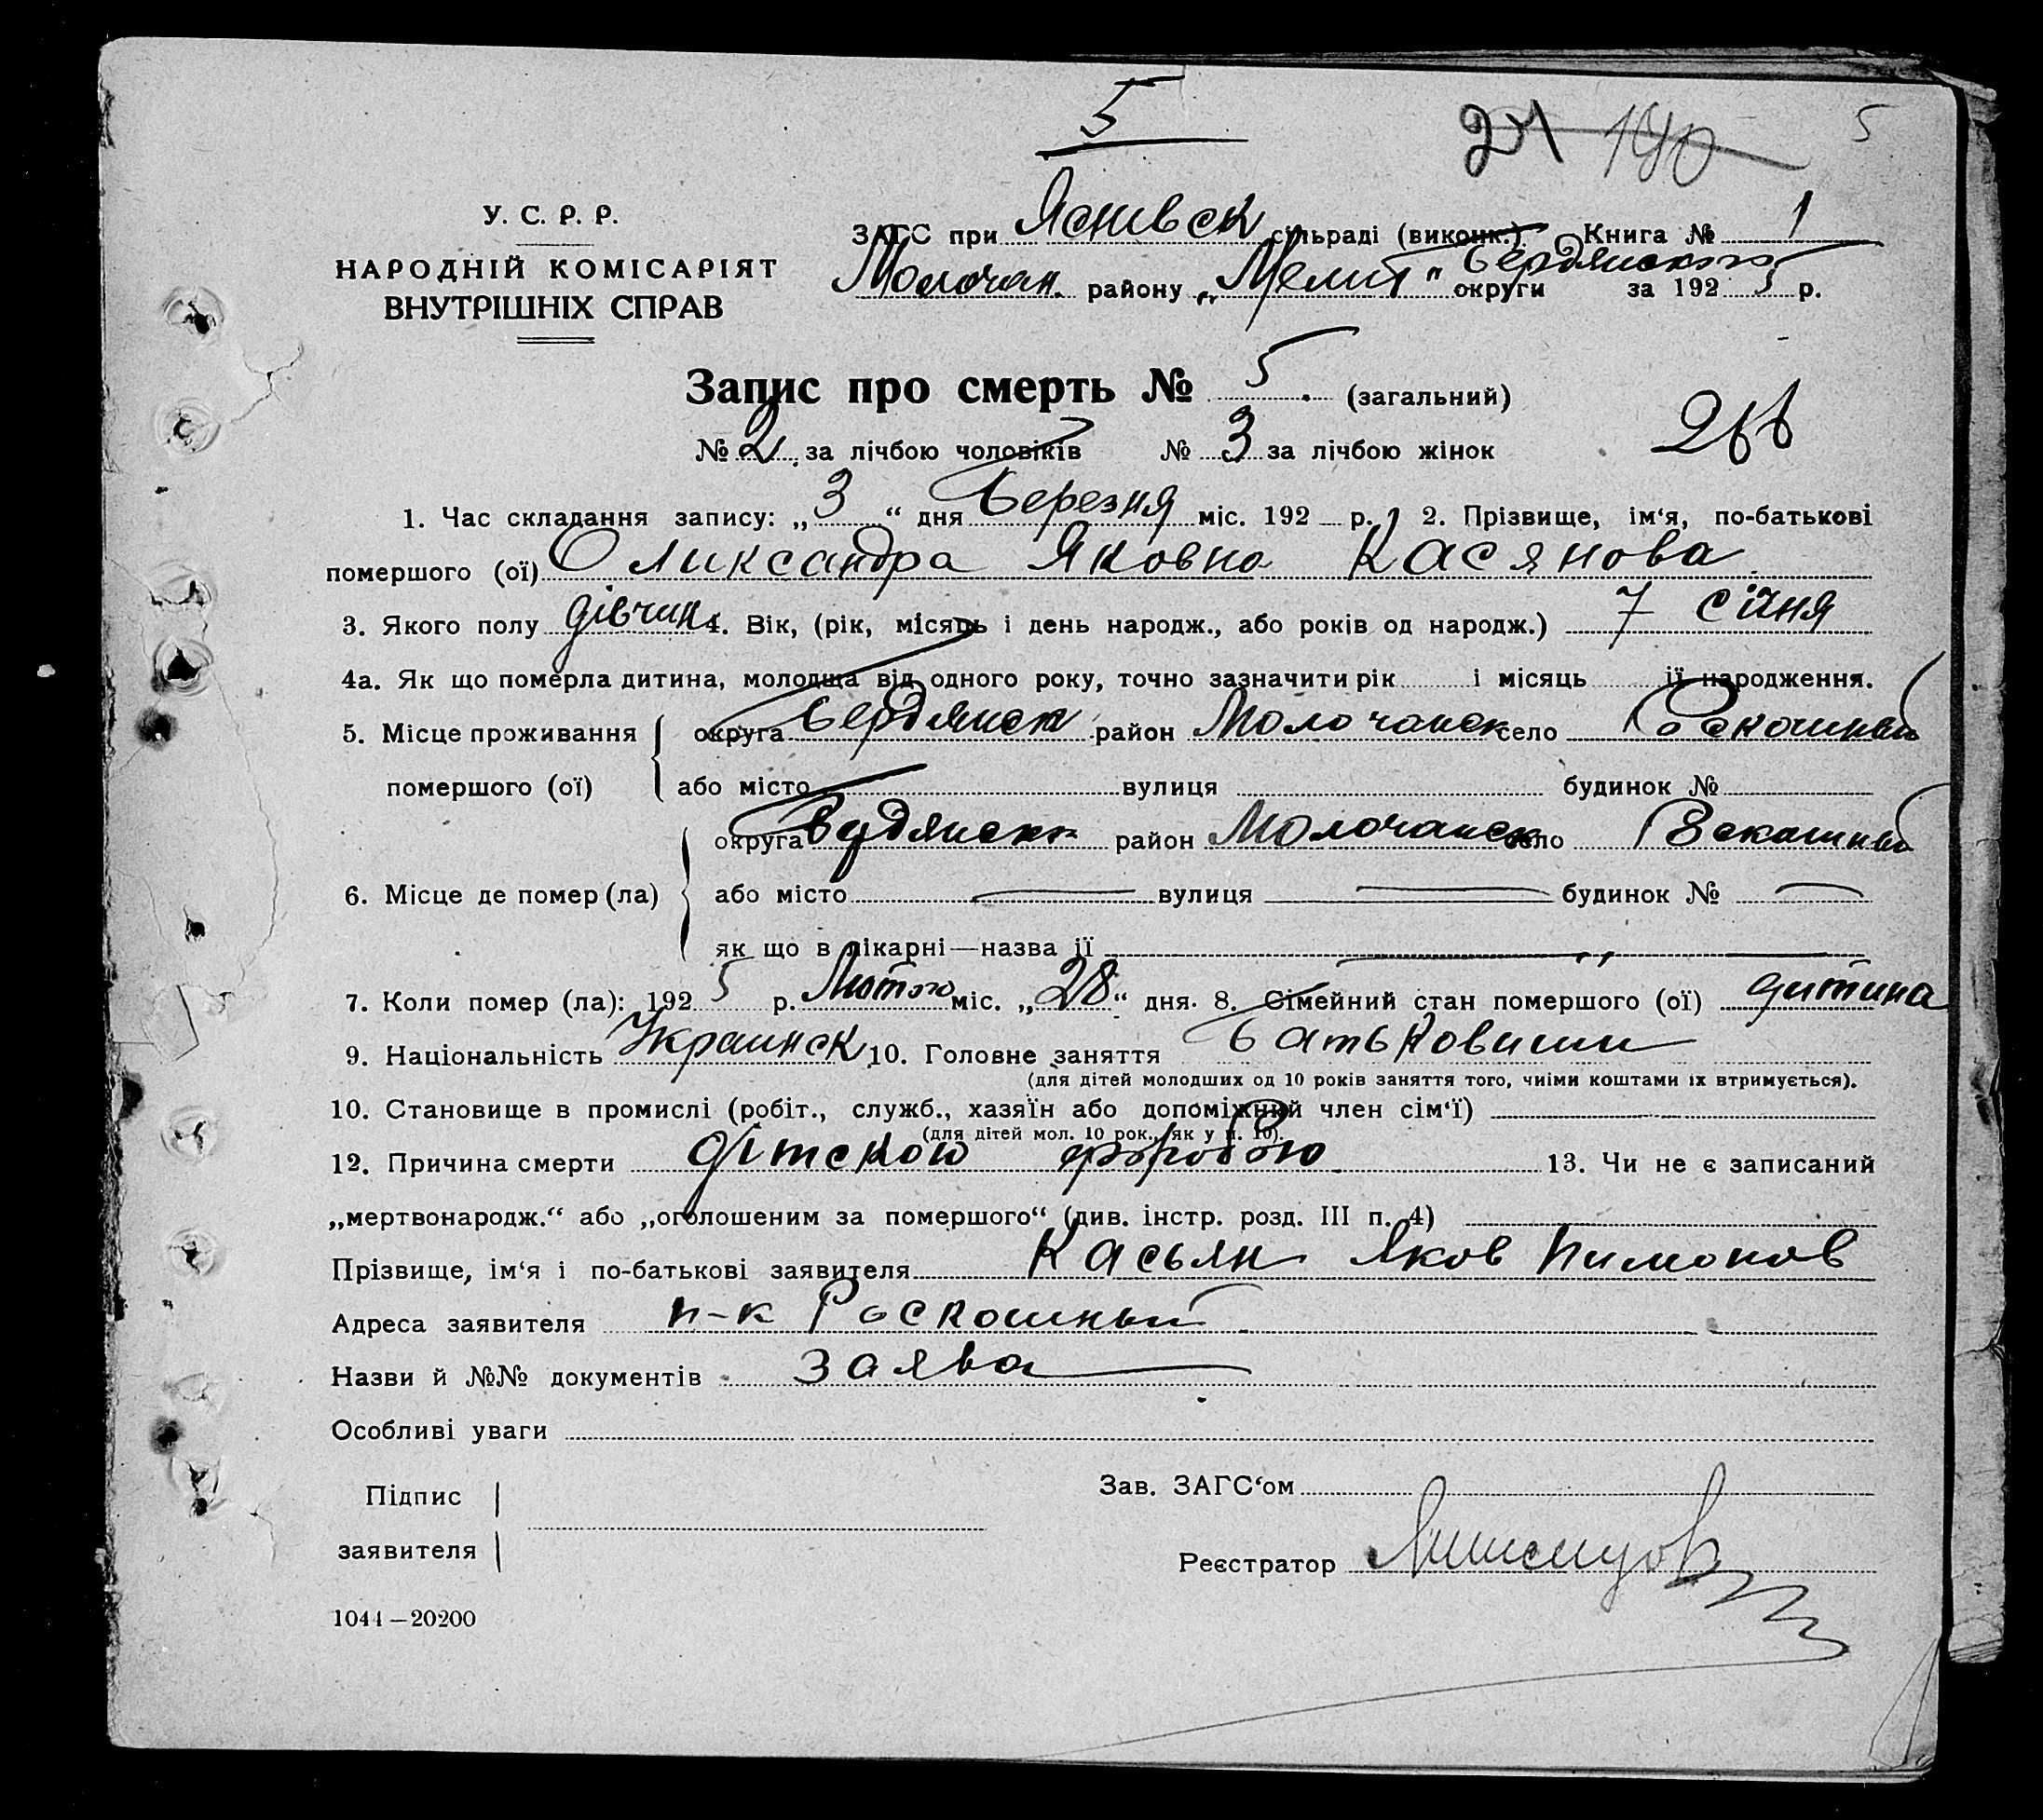 5
24 140 5
У. С. Р. Р.
НАРОДНІЙ КОМІСАРІЯТ
ВНУТРІШНІХ СПРАВ
ЗАГС при Яснивск сільраді (виконк.). Книга № 1
Молочан. району „Мелит" Бердянского округи за 192 5 р.
Запис про смерть № 5 (загальний)
№ 2 за лічбою чоловіків № 3 за лічбою жінок
266
1. Час складання запису: „ 3 “ дня Березня міс. 192 р. 2. Прізвище, ім‘я, по-батькові
помершого (ої) Оликсандра Яковна Касянова
3. Якого полу дівчин 4. Вік, (рік, місяць і день народж., або років од народж.) 7 січня
4а. Як що померла дитина, молодша від одного року, точно зазначити рік і місяць її народження.
5. Місце проживання округа Бердянск район Молочанск село Роскошный
помершого (ої) або місто вулиця будинок №
округа район Молочанск село
6. Місце де помер (ла) або місто вулиця будинок №
як що в лікарні—назва її
7. Коли помер (ла): 192 5 р. Лютого міс. „ 28 “ дня. 8. Сімейний стан помершого (ої) дитина
9. Національність Украинск 10. Головне заняття батьковими
(для дітей молодших од 10 років заняття того, чиїми коштами їх втримується).
10. Становище в промислі (робіт., служб., хазяїн або допоміжний член сім‘ї)
(для дітей мол. 10 рок., як у п. 10).
12. Причина смерти дітскою 13. Чи не є записаний
„мертвонародж.“ або „оголошеним за помершого“ (див. інстр. розд. III п. 4)
Прізвище, ім‘я і по-батькові заявителя Касьян Яков Пимонов
Адреса заявителя п-к Роскошный
Назви й №№ документів заява
Особливі уваги
Підпис
заявителя
Зав. ЗАГС‘ом
Реєстратор
1044—20200